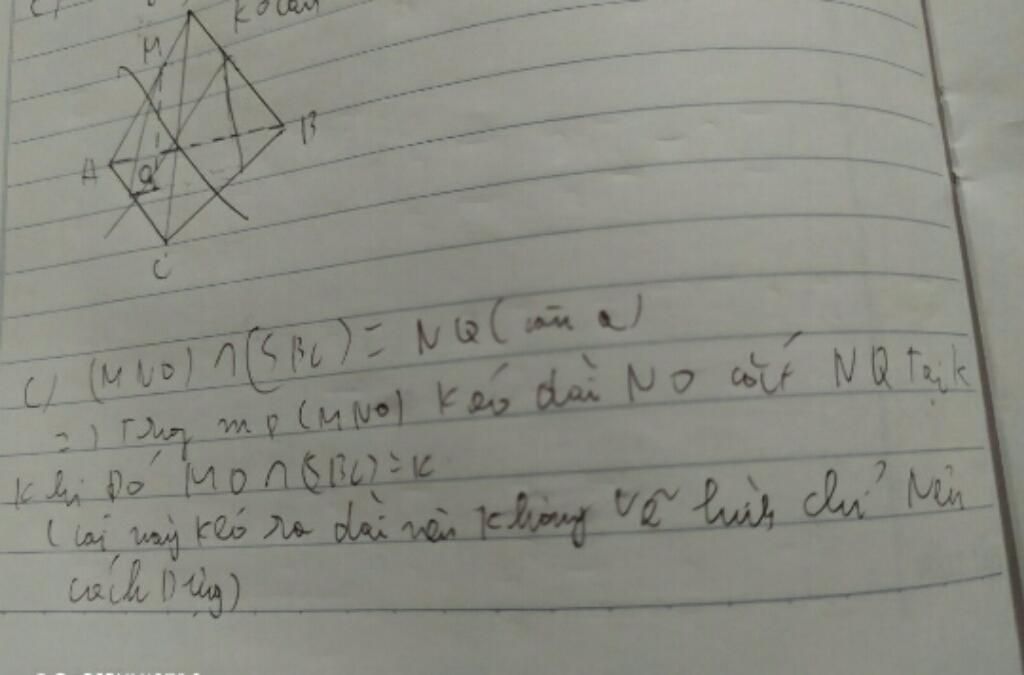 M
A
B
Q
C
C) (MNO) ∩ (SBC) = NQ (câu a)
=) Trong mp (MNO) kéo dài NO cắt NQ tại K
Khi Đó MO ∩ (SBC) = K
(cái này kéo ra dài nên không vẽ hình chỉ Nêu
cách Dựng)